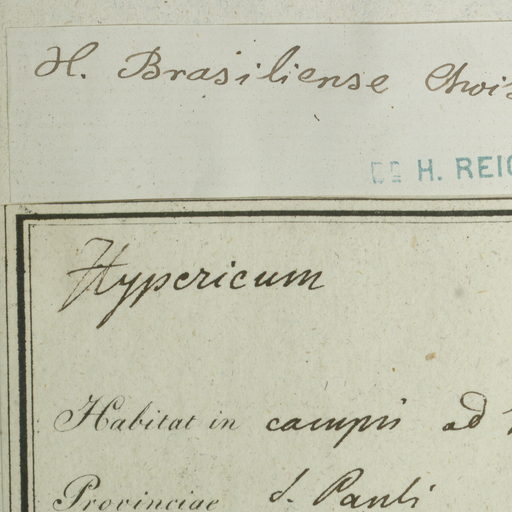 H. Brasiliense Chois
H. REIC
Hypericum
Habitat in campis ad
Provinciae S. Pauli